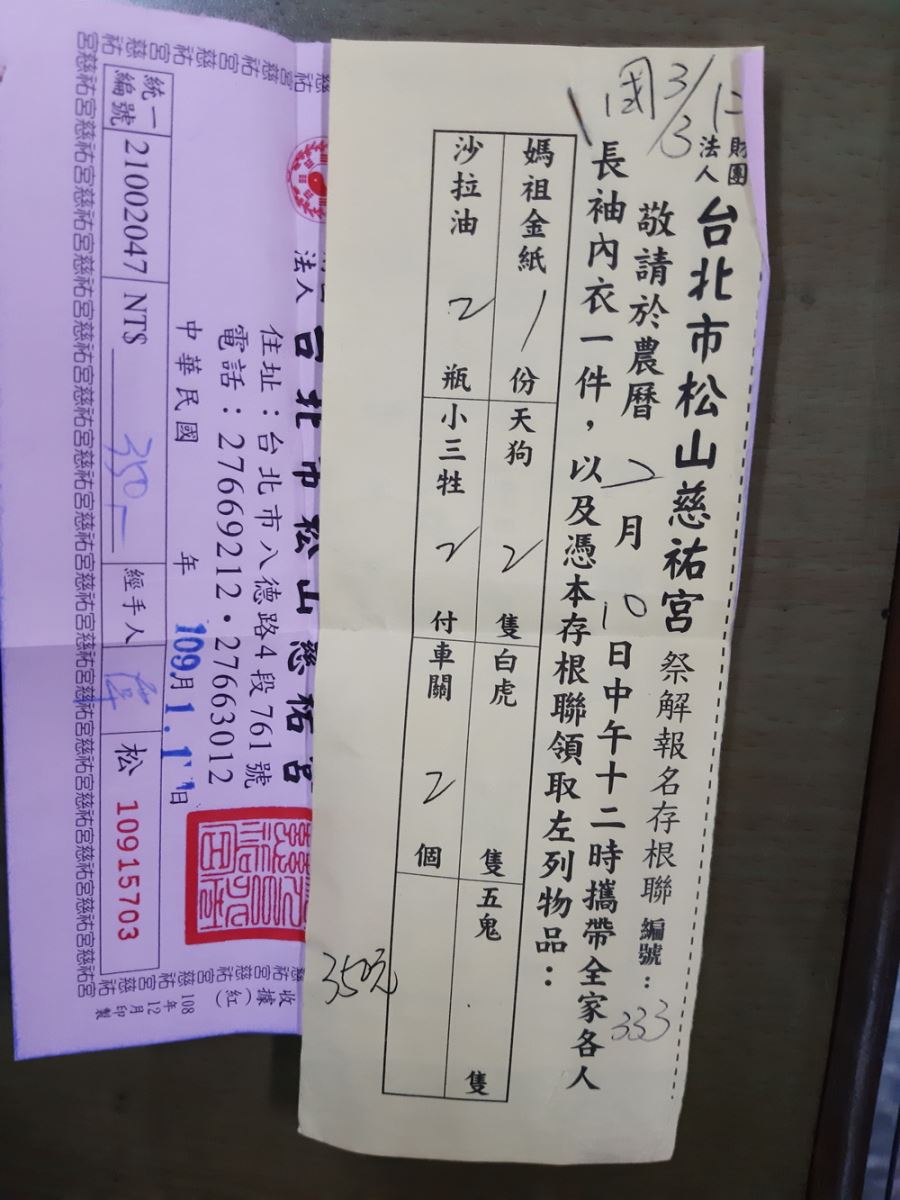 國 3/3
財團法人台北市松山慈祐宮 祭解報名存根聯 編號：333
敬請於農曆 2月 10日中午十二時攜帶全家各人
長袖內衣一件，以及憑本存根聯領取左列物品：
媽祖金紙 1 份 天狗 2 隻 白虎 隻 五鬼 隻
沙拉油 2 瓶 小三牲 2 付 車關 2 個
350元
法人 台北市松山慈祐宮
住址：台北市八德路4段761號
電話：27669212·27663012
中華民國 年 109月 1.1 日
統一編號 21002047 NT$ 350 經手人 松 10915703
收據(紅)
108年12月印製
慈祐宮慈祐宮慈祐宮慈祐宮慈祐宮